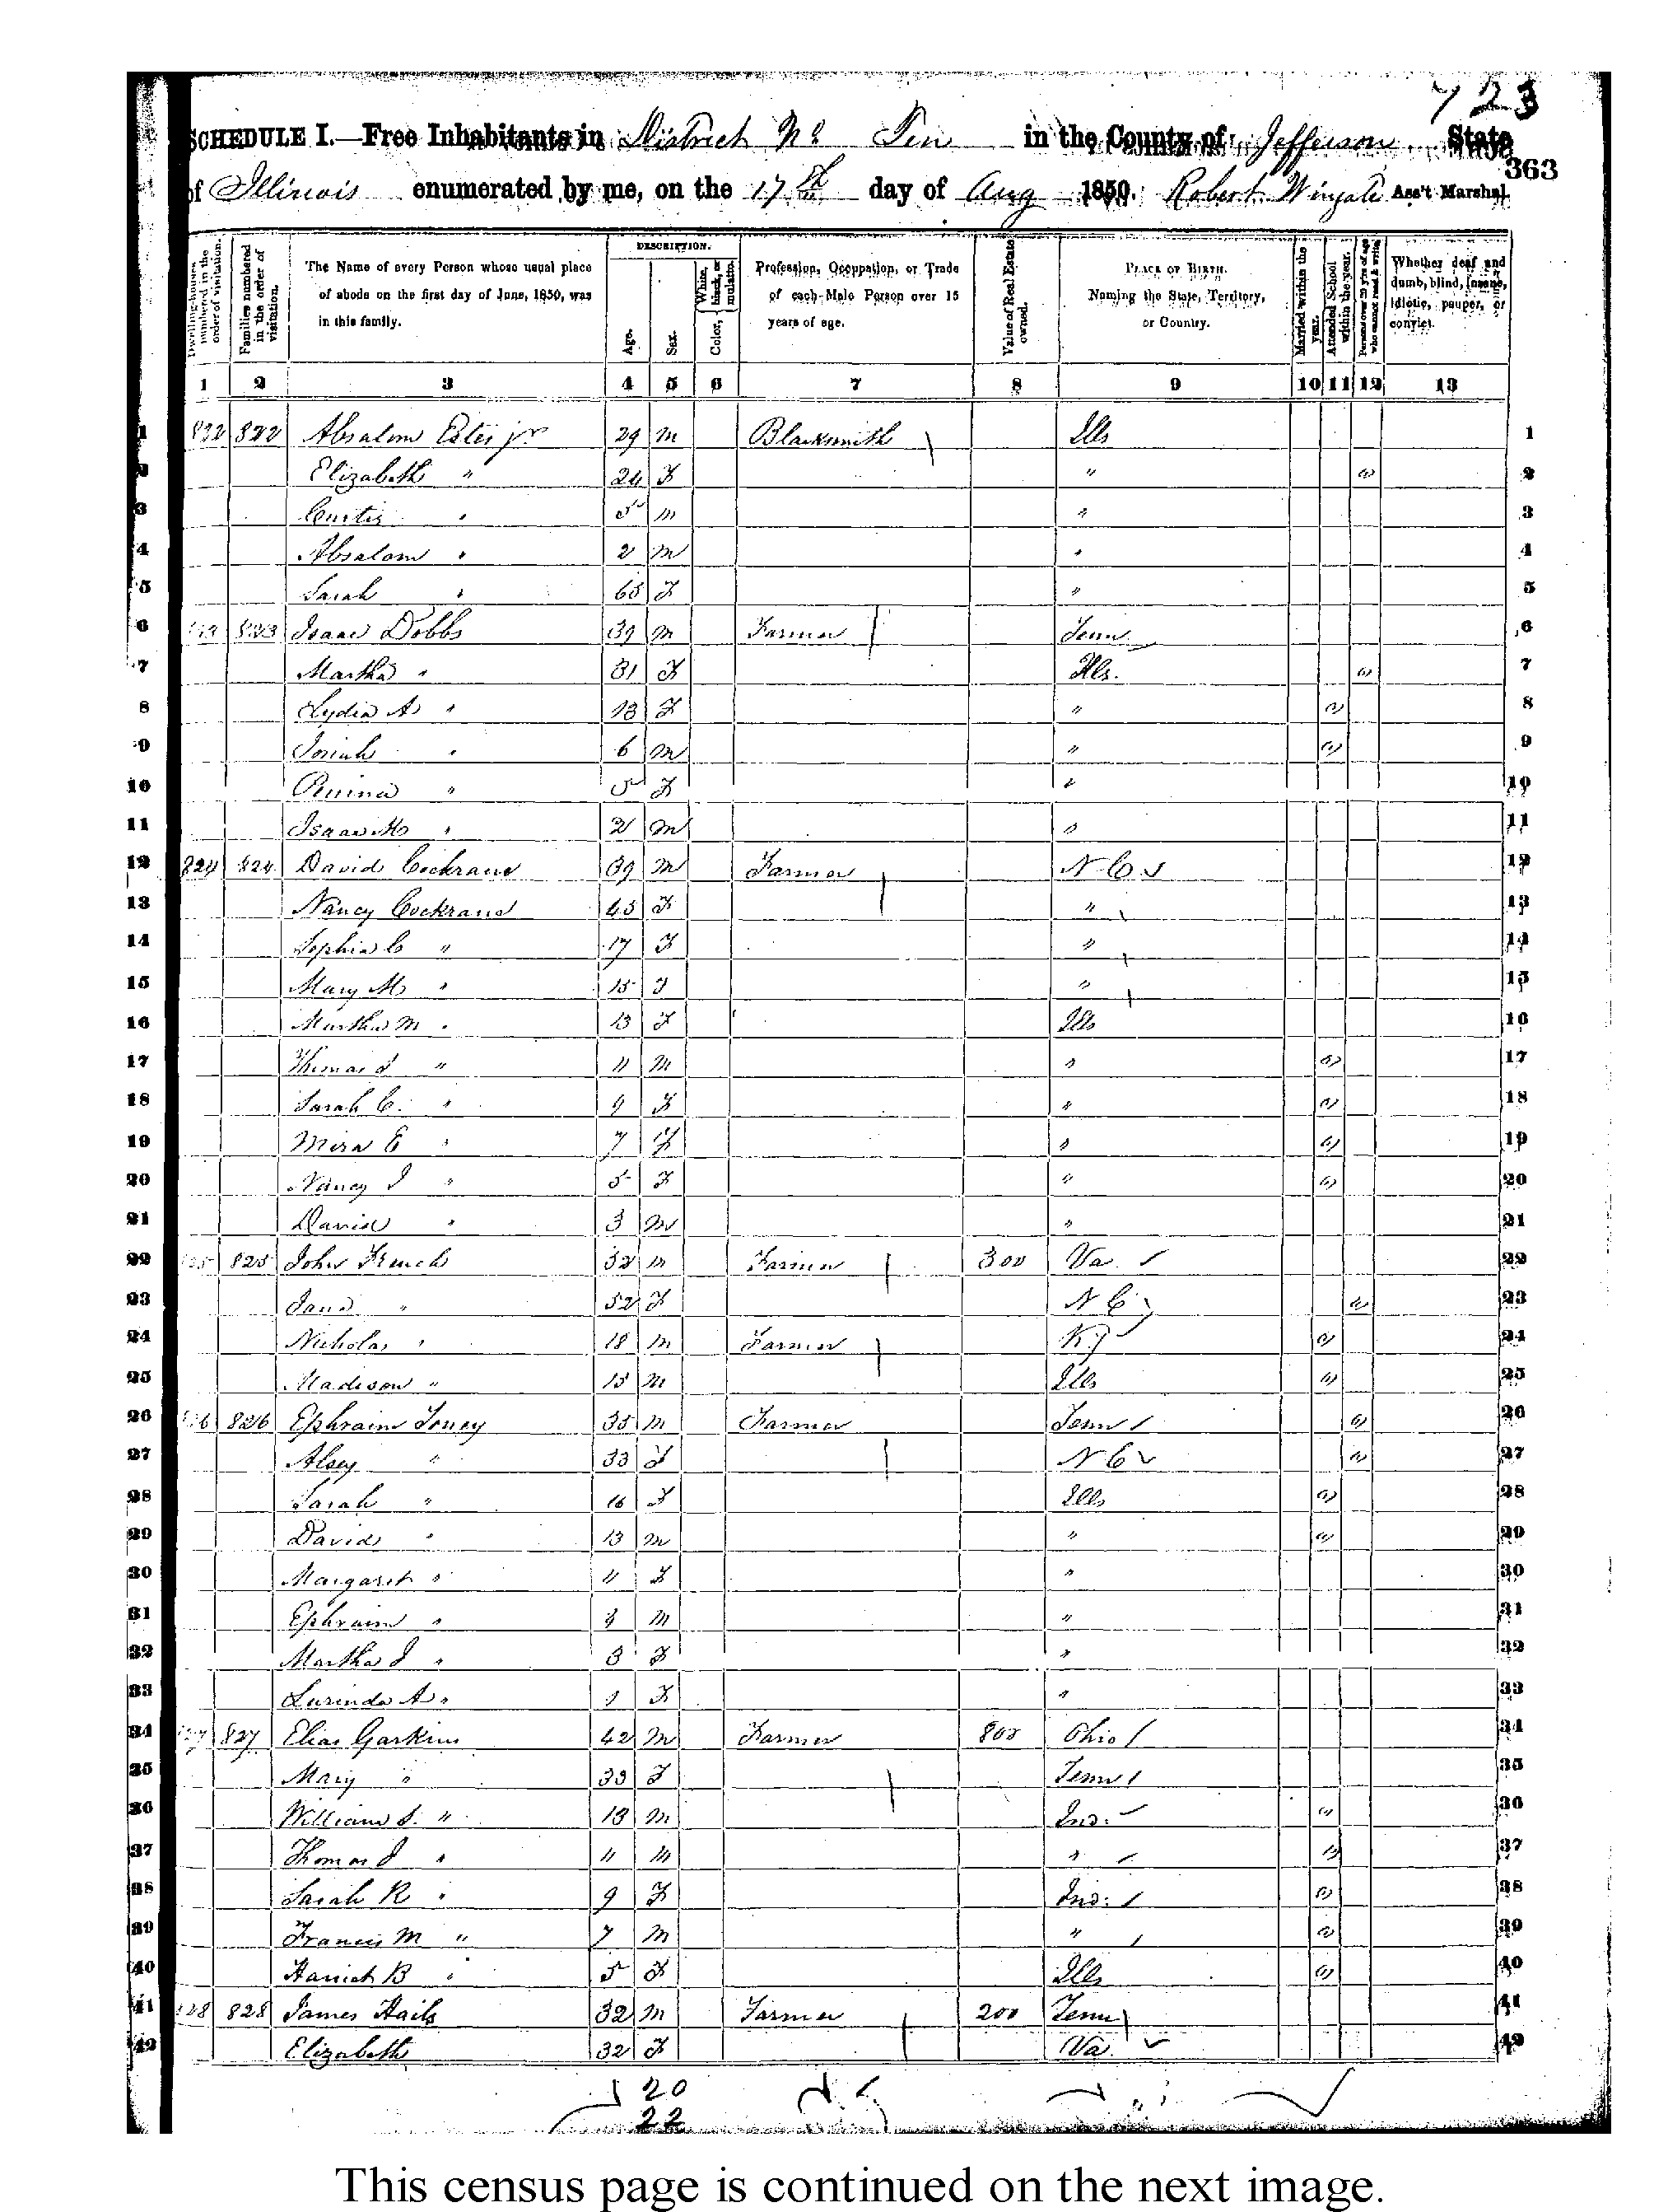 723
SCHEDULE I.—Free Inhabitants in District No Ten in the County of Jefferson State
363
of Illinois enumerated by me, on the 17th day of Aug 1850. Robert Wingate Ass't Marshal.
Dwelling-houses numbered in the order of visitation.
Families numbered in the order of visitation.
The Name of every Person whose usual place of abode on the first day of June, 1850, was in this family.
DESCRIPTION.
Age.
Sex.
Color, White, black, or mulatto.
Profession, Occupation, or Trade of each Male Person over 15 years of age.
Value of Real Estate owned.
PLACE OF BIRTH. Naming the State, Territory, or Country.
Married within the year.
Attended School within the year.
Persons over 20 y'rs of age who cannot read & write.
Whether deaf and dumb, blind, insane, idiotic, pauper, or convict.
1 2 3 4 5 6 7 8 9 10 11 12 13
1 822 822 Absalom Estes jr 29 m Blacksmith Ills 1
2 Elizabeth " 24 F " 2
3 Curtis " 5 m " 3
4 Absalom " 2 m " 4
5 Sarah " 65 F " 5
6 823 Isaac Dobbs 39 m Farmer Tenn 6
7 Martha " 31 F Ills. 7
8 Lydia A " 13 F " 8
9 Josiah " 6 m " 9
10 " 5 F " 10
11 Isaac M " 2 m " 11
12 824 824 David Cockrane 39 m Farmer N C 12
13 Nancy Cockrane 45 F " 13
14 Sophia C " 17 F " 14
15 Mary M " 15 F " 15
16 Martha M " 13 F Ills 16
17 Thomas J " 11 m " 17
18 Sarah C. " 9 F " 18
19 Mira E " 7 F " 19
20 Nancy J " 5 F " 20
21 David " 3 m " 21
22 825 John French 52 m Farmer 300 Va 22
23 Jane " 52 F N C 23
24 Nicholas " 18 m Farmer Ky 24
25 Madison " 15 m Ills 25
26 826 Ephraim Toney 35 m Farmer Tenn 26
27 Alsey " 33 F N C 27
28 Sarah " 16 F Ills 28
29 David " 13 m " 29
30 Margaret " 11 F " 30
31 Ephraim " m " 31
32 Martha J " 3 F " 32
33 Lurinda A " 1 F " 33
34 827 Elias Gaskins 42 m Farmer 800 Ohio 34
35 Mary " 33 F Tenn 35
36 William S. " 13 m Ind. 36
37 Thomas J " 11 m " 37
38 Sarah R " 9 F Ind. 38
39 Francis M " 7 m " 39
40 Harriet B " 5 F Ills 40
41 828 828 James Hails 32 m Farmer 200 Tenn 41
42 Elizabeth 32 F Va 42
20
22
This census page is continued on the next image.